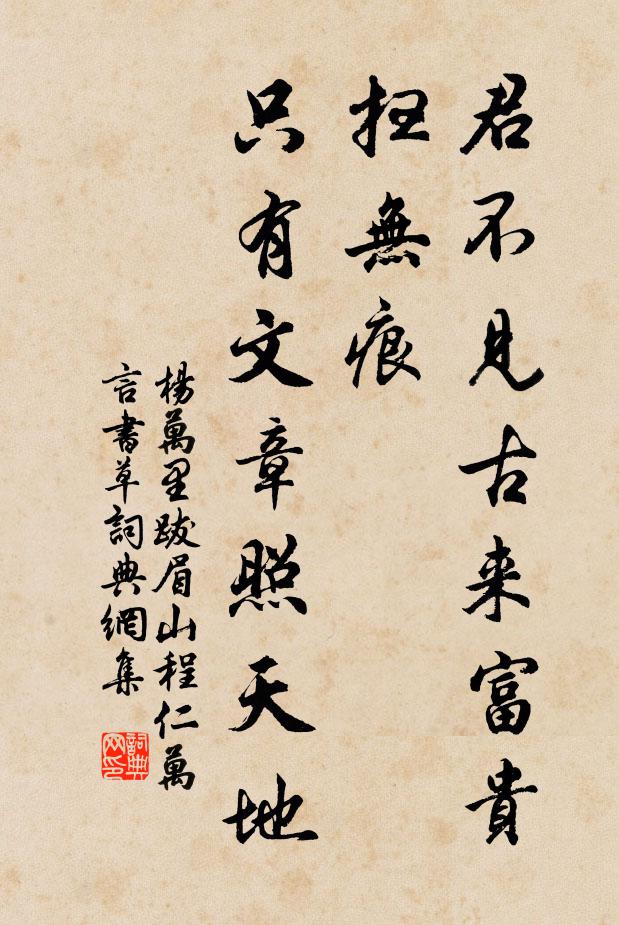 君不見古来富貴
掃無痕
只有文章照天地
楊萬里跋眉山程仁萬
言書草詞典網集
詞典
网印